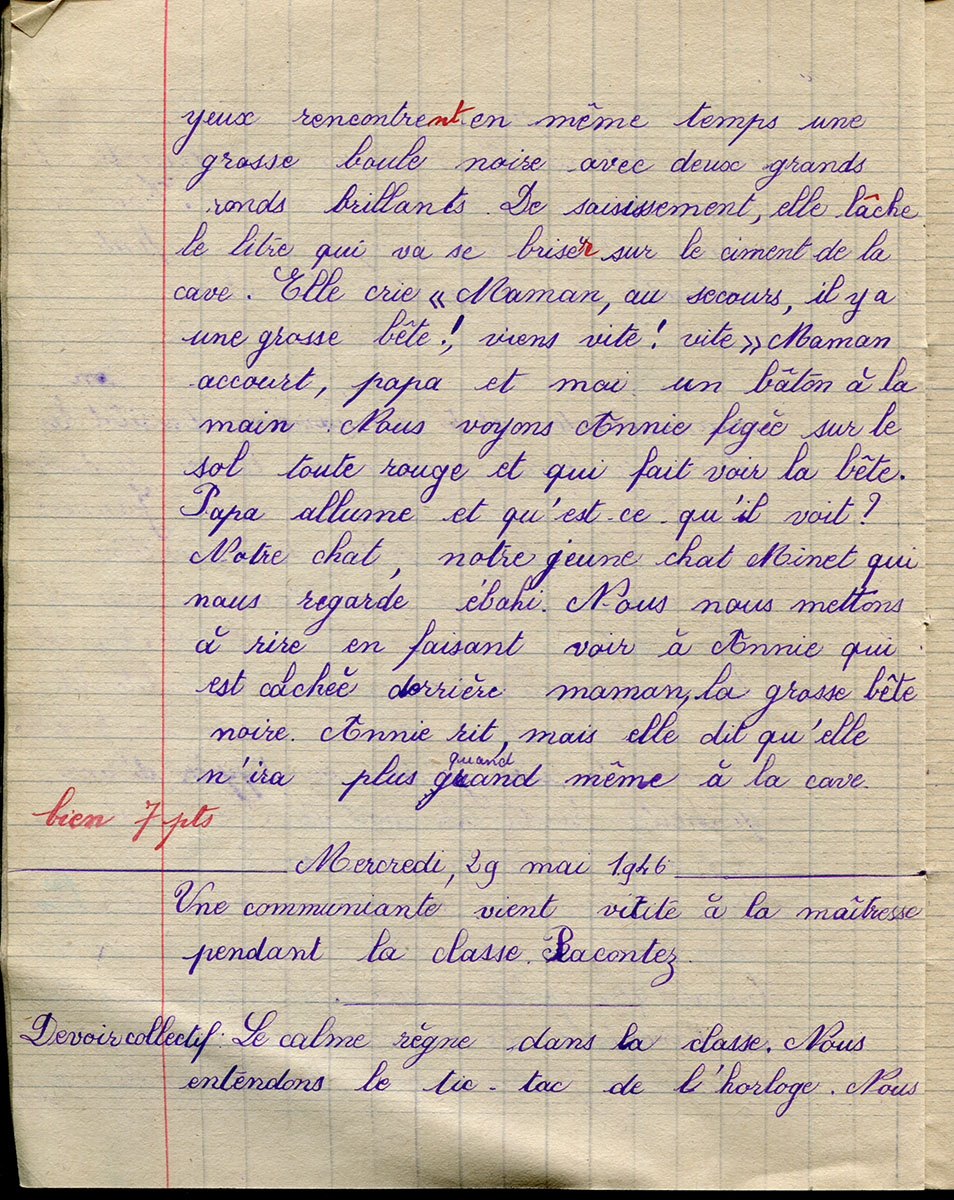 yeux rencontrent en même temps une
grosse boule noire avec deux grands
ronds brillants. De saisissement, elle lâche
le litre qui va se briser sur le ciment de la
cave. Elle crie « Maman, au secours, il y a
une grosse bête ! viens vite ! vite » Maman
accourt, papa et moi un bâton à la
main. Nous voyons Annie figée sur le
sol toute rouge et qui fait voir la bête.
Papa allume et qu'est-ce qu'il voit ?
Notre chat, notre jeune chat Minet qui
nous regarde ébahi. Nous nous mettons
à rire en faisant voir à Annie qui
est cachée derrière maman, la grosse bête
noire. Annie rit, mais elle dit qu'elle
quand
n'ira plus grand même à la cave.
bien 7 pts
Mercredi, 29 mai 1946
Une communiante vient vitite à la maîtresse
pendant la classe. Racontez.
Devoir collectif : Le calme règne dans la classe. Nous
entendons le tic-tac de l'horloge. Nous